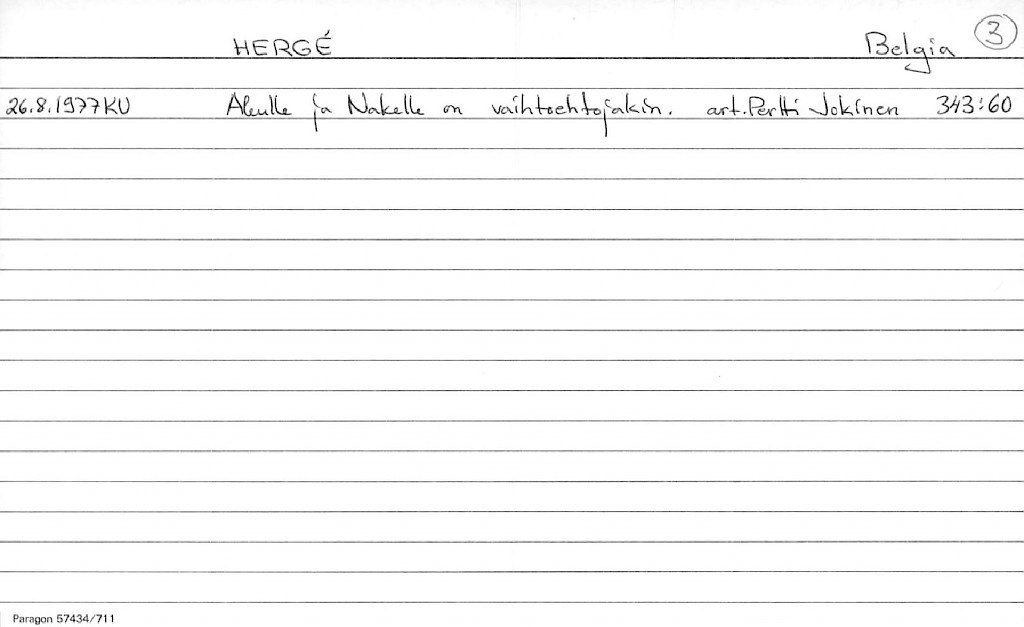 HERGÉ Belgia 3
26.8.1977 KU Akulle ja Nakelle on vaihtoehtojakin. art. Pertti Jokinen 343:60
Paragon 57434/711